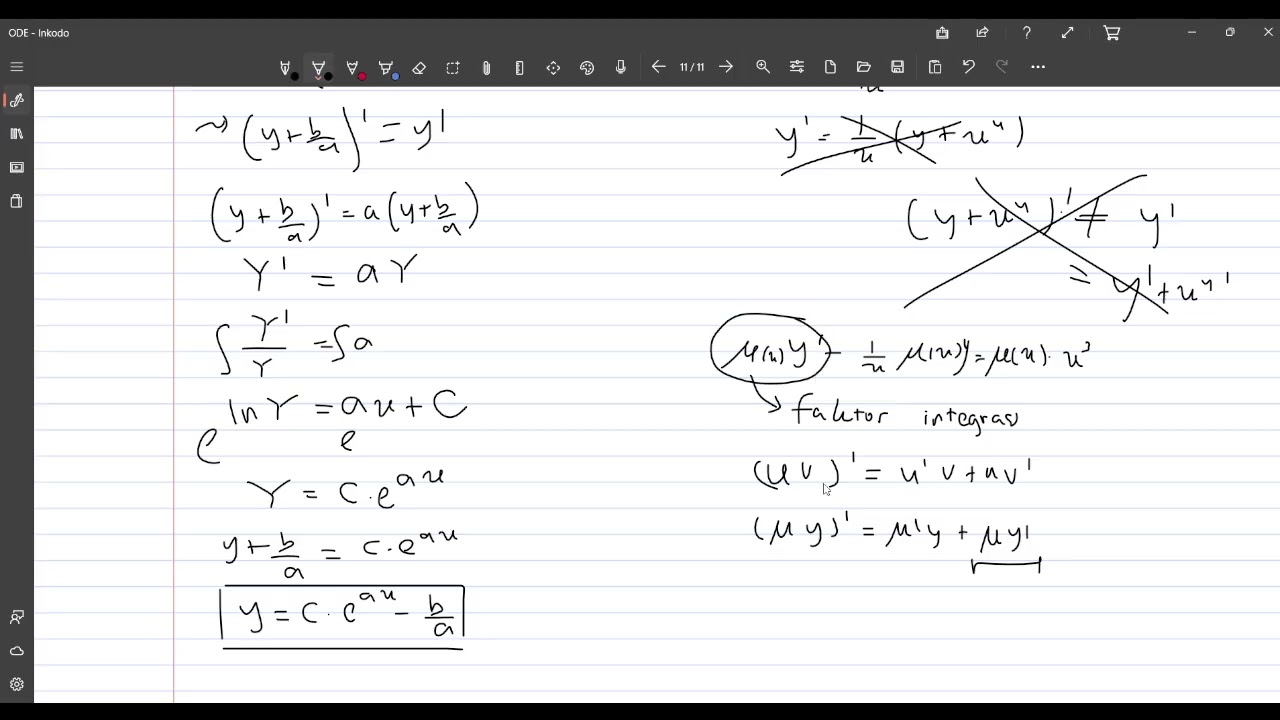 ODE - Inkodo
11/11
⇝ (y + b/a)' = y'
(y + b/a)' = a(y + b/a)
Y' = aY
∫ Y'/Y = ∫ a
ln Y = ax + C
e e
Y = C · e^{ax}
y + b/a = C · e^{ax}
y = C · e^{ax} - b/a
x
y' = 1/x (y + x⁴)
(y + x⁴)' ≠ y'
= y' + x⁴'
μ(x) y' - 1/x μ(x) y = μ(x) · x³
faktor integrasi
(u v)' = u' v + u v'
(μ y)' = μ' y + μ y'